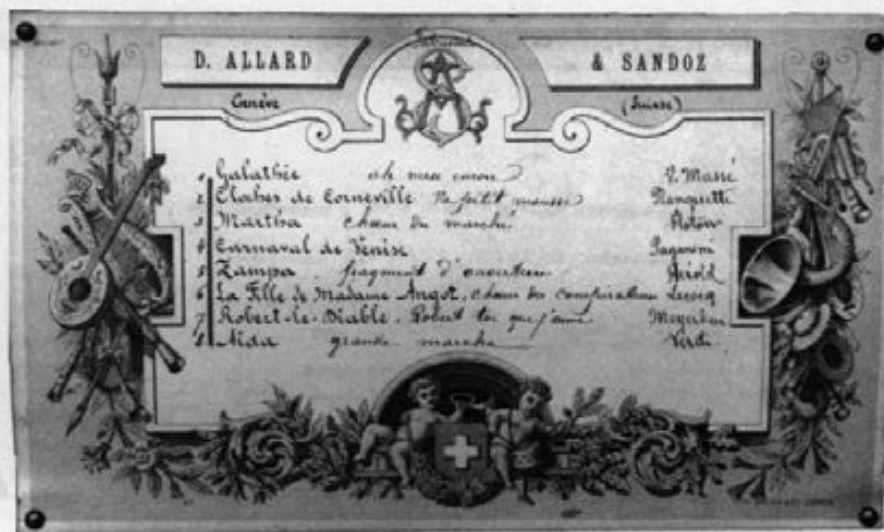 D. ALLARD & SANDOZ
Genève (Suisse)
1 Galathée ah mea V. Massé
2 Cloches de Corneville Va petit mousse Planquette
3 Martha chœur du marché Flotow
4 Carnaval de Venise Paganini
5 Zampa, fragment d'ouverture Hérold
6 La Fille de Madame Angot, chœur des conspirateurs Lecocq
7 Robert-le-Diable, Robert toi que j'aime Meyerbeer
8 Aïda grande marche Verdi